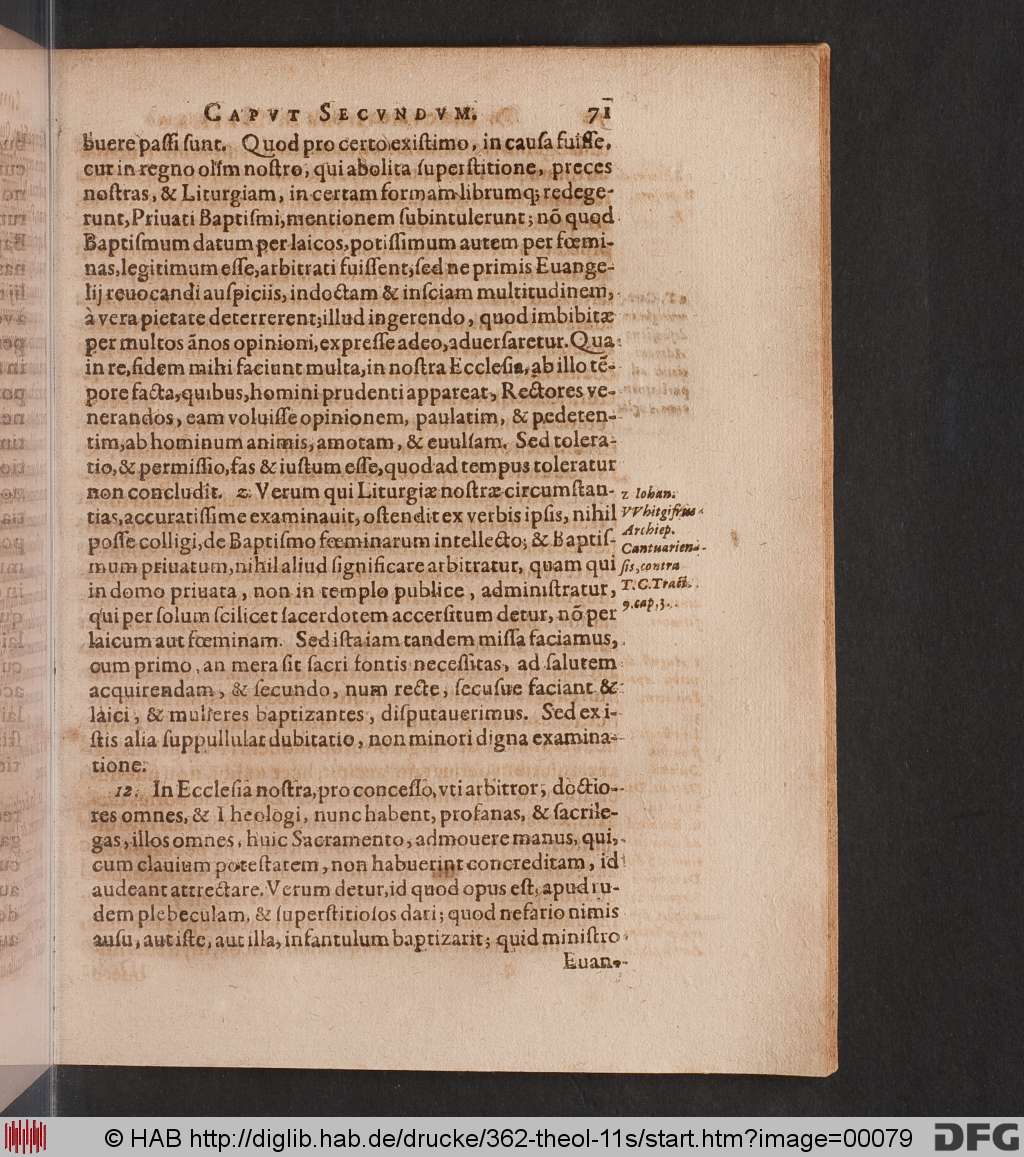 CAPVT SECVNDVM. 71
buere paſſi ſunt. Quod pro certo exiſtimo, in cauſa fuiſſe,
cur in regno olim noſtro, qui abolita ſuperſtitione, preces
noſtras, & Liturgiam, in certam formam librumq; redege-
runt, Priuati Baptiſmi, mentionem ſubintulerunt; nō quod
Baptiſmum datum per laicos, potiſſimum autem per fœmi-
nas, legitimum eſſe, arbitrati fuiſſent; ſed ne primis Euange-
lij reuocandi auſpiciis, indoctam & inſciam multitudinem,
à vera pietate deterrerent; illud ingerendo, quod imbibitæ
per multos ānos opinioni, expreſſe adeo, aduerſaretur. Qua
in re, fidem mihi faciunt multa, in noſtra Eccleſia, ab illo tē-
pore facta, quibus, homini prudenti appareat, Rectores ve-
nerandos, eam voluiſſe opinionem, paulatim, & pedeten-
tim, ab hominum animis, amotam, & euulſam. Sed tolera-
tio, & permiſſio, fas & iuſtum eſſe, quod ad tempus toleratur
non concludit. z. Verum qui Liturgiæ noſtræ circumſtan-
tias, accuratiſſime examinauit, oſtendit ex verbis ipſis, nihil
poſſe colligi, de Baptiſmo fœminarum intellecto; & Baptiſ-
mum priuatum, nihil aliud ſignificare arbitratur, quam qui
in domo priuata, non in templo publice, adminiſtratur,
qui per ſolum ſcilicet ſacerdotem accerſitum detur, nō per
laicum aut fœminam. Sed iſta iam tandem miſſa faciamus,
cum primo, an mera ſit ſacri fontis neceſſitas, ad ſalutem
acquirendam, & ſecundo, num recte, ſecuſue faciant &
laici, & mulieres baptizantes, diſputauerimus. Sed ex i-
ſtis alia ſuppullulat dubitatio, non minori digna examina-
tione.
z Iohan.
VVhitgifrius
Archiep.
Cantuarien-
ſis, contra
T. C. Tract.
9. cap. 3.
12. In Eccleſia noſtra, pro conceſſo, vti arbitror, doctio-
res omnes, & Theologi, nunc habent, profanas, & ſacrile-
gas, illos omnes, huic Sacramento, admouere manus, qui,
cum clauium poteſtatem, non habuerint concreditam, id
audeant attrectare. Verum detur, id quod opus eſt, apud ru-
dem plebeculam, & ſuperſtitioſos dari; quod nefario nimis
auſu, aut iſte, aut illa, infantulum baptizarit; quid miniſtro
Euan-
© HAB http://diglib.hab.de/drucke/362-theol-11s/start.htm?image=00079 DFG